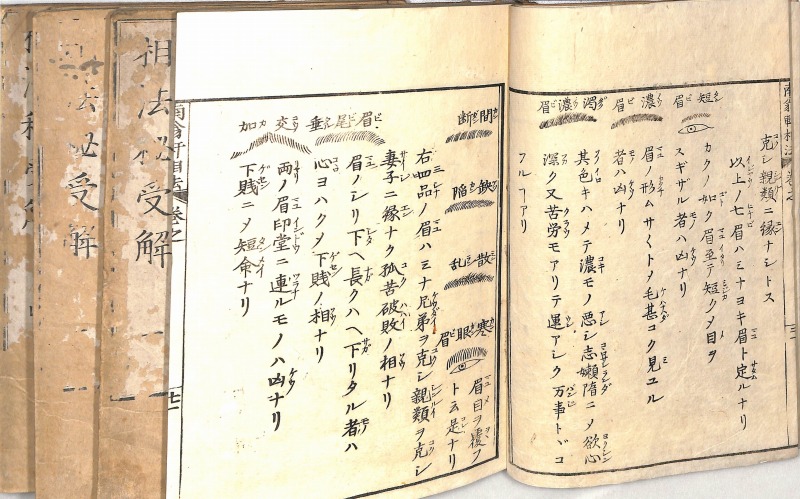 克シ親類ニ縁ナシトス
以上ノ七眉ハミナヨキ眉ト定ルナリ
短眉
カクノ如ク眉至テ短クメ目ヲ
スギサル者ハ凶ナリ
濃眉
眉ノ形ムサ〱トメ毛甚コク見ユル
者ハ凶ナリ
濁濃眉
其色キハメテ濃モノ悪シ志嬾隋ニメ欲心
深ク又苦労モアリテ運アシク万事トヾコ
フルヿアリ
間断
缺陥
散乱
寒眼眉
眉目ヲ覆フ
ト云是ナリ
右四品ノ眉ハミナ兄弟ヲ克シ親類ヲ克シ
妻子ニ縁ナク孤苦破敗ノ相ナリ
眉尾垂
眉ノシリ下ヘ長クハヘ下リタル者ハ
心ヨハクメ下賤ノ相ナリ
交加
両ノ眉印堂ニ連ルモノハ凶ナリ
下賤ニメ短命ナリ
相法秘受解 一
法秘受解